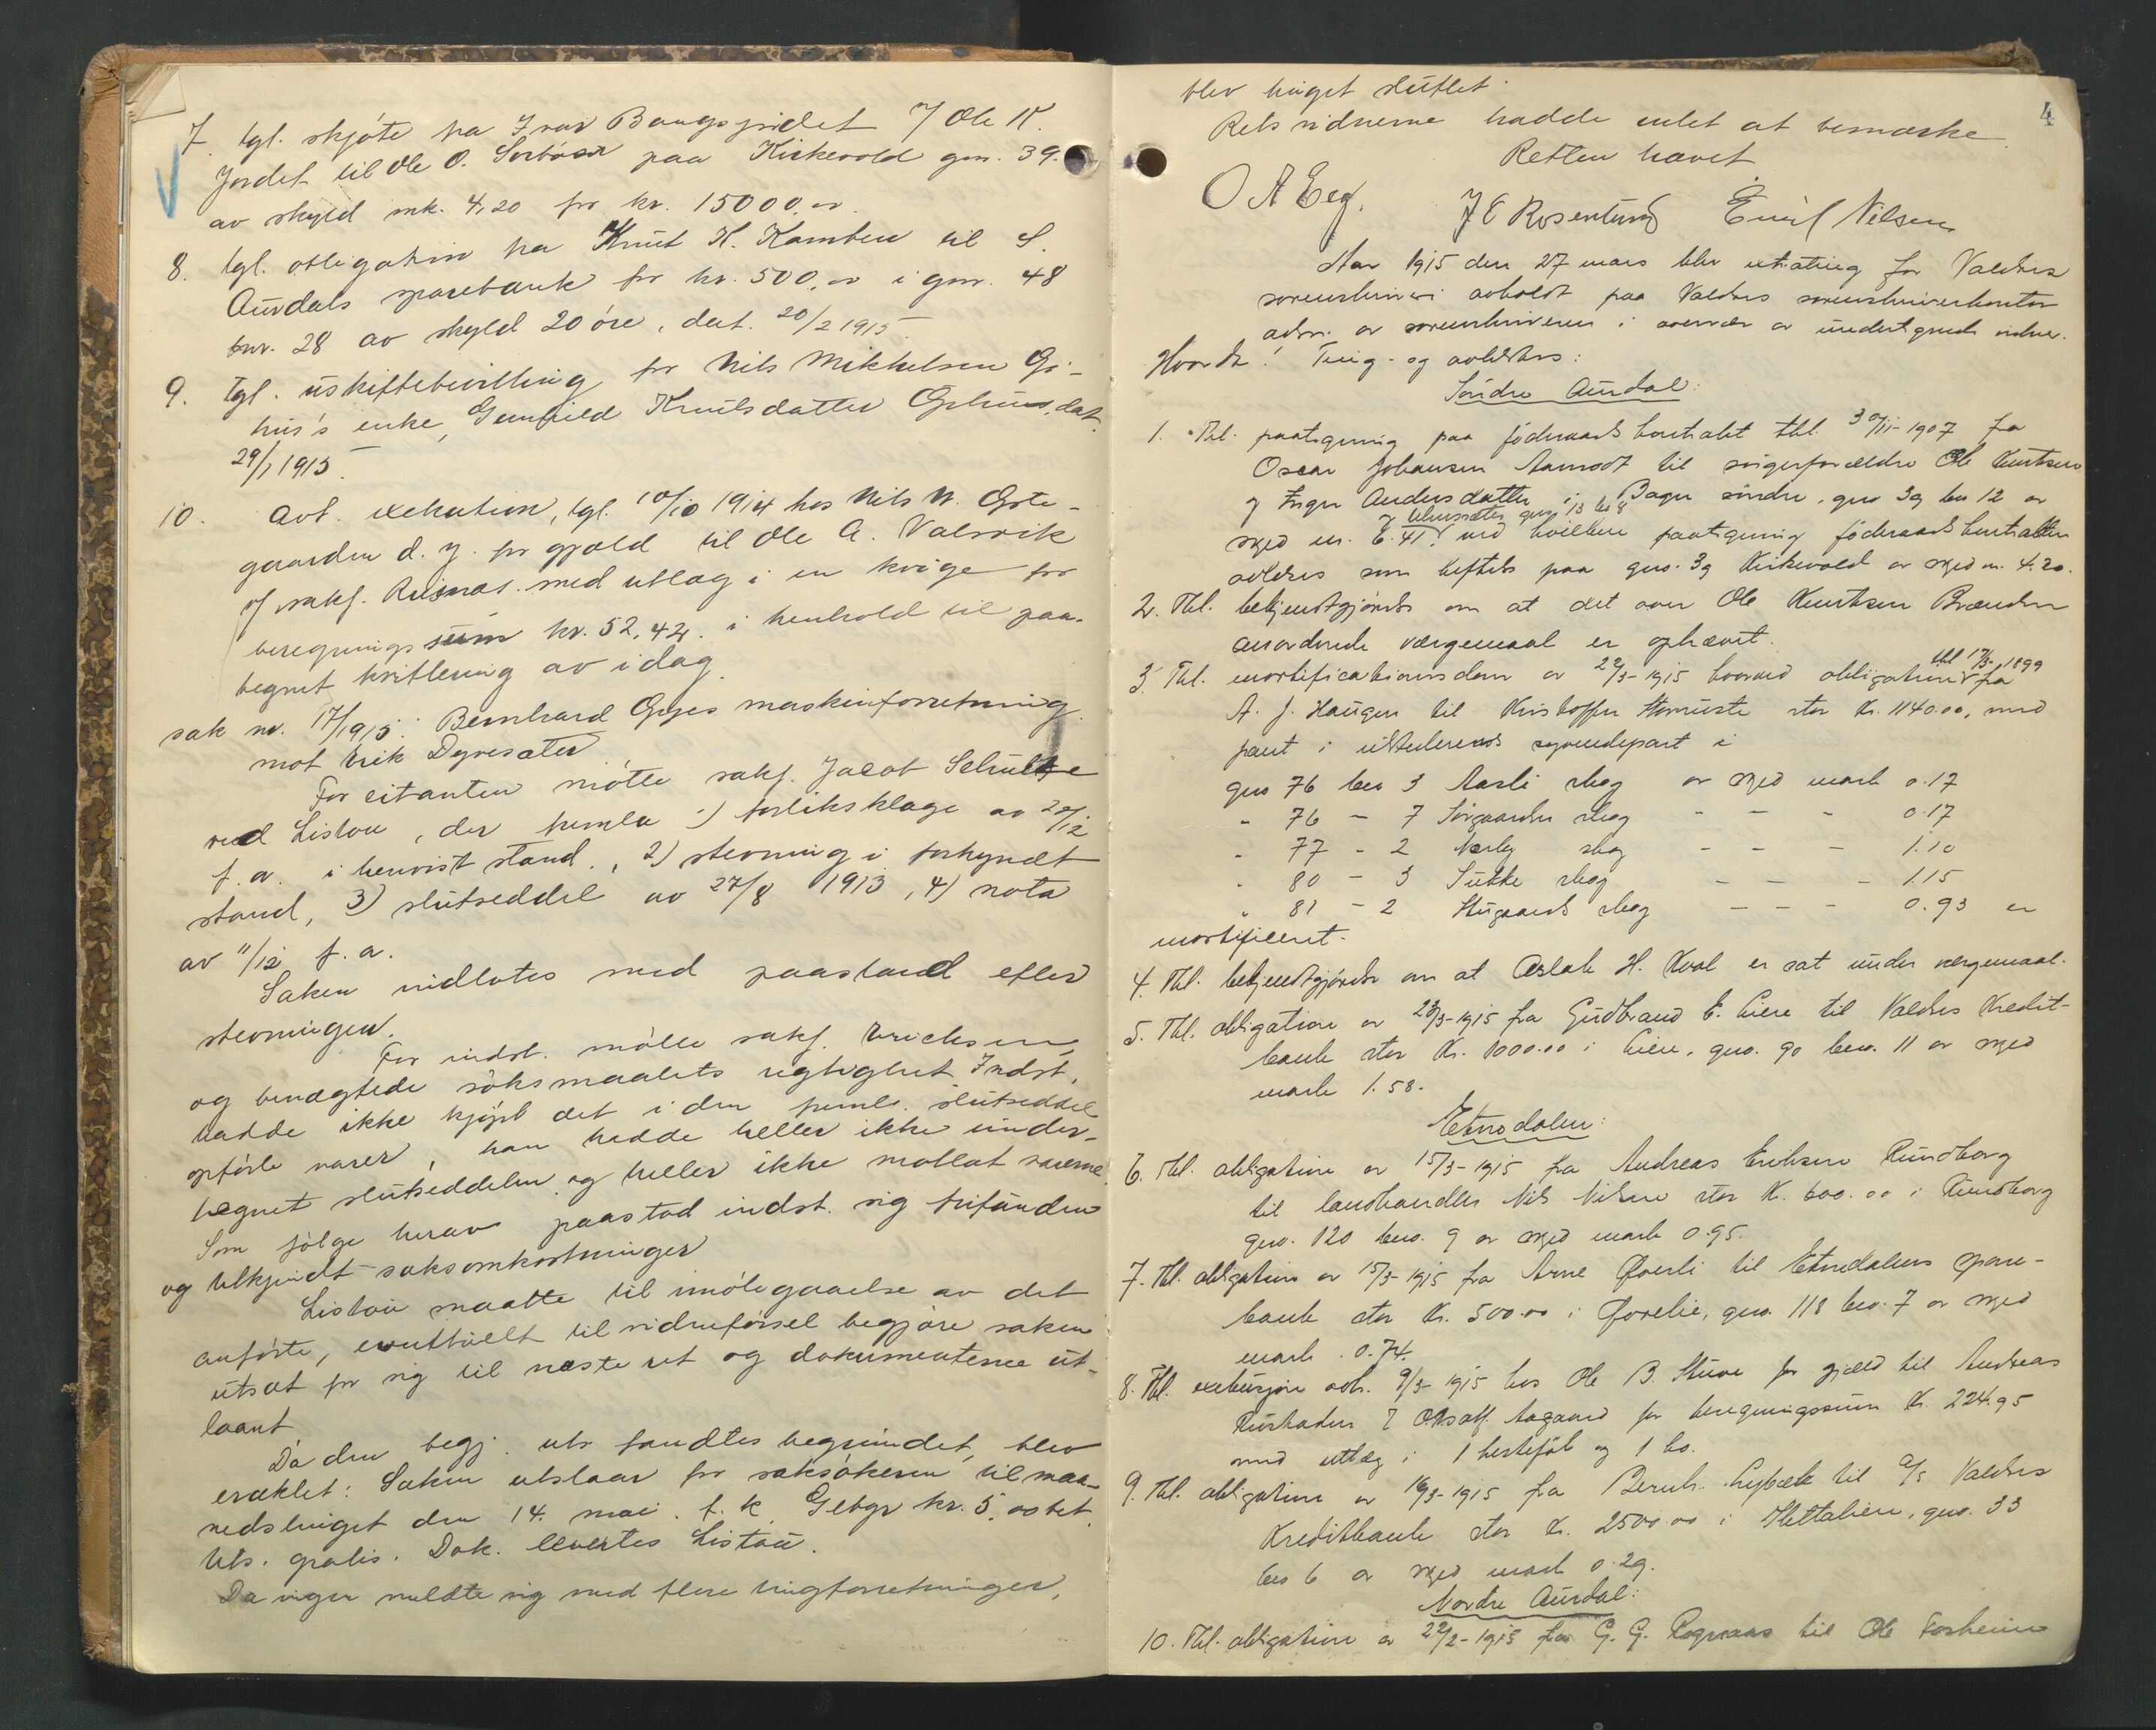 7. tgl. skjöte fra Ivar Baugsjordet // Ole K.
Jordet til Ole O. Sorbóen paa Kirkevold gnr. 39.
av skyld mk. 4,20 for kr. 15000,00.
8. tgl. obligation fra Knut K. Kamben til S.
Aurdals sparebank for kr. 500,00 i gnr. 48
bnr. 28 av skyld 20 öre, dat. 20/2 1915
9. Tgl. uskiftebevilling for Nils Mikkelsen
hus's enke, Gunhild Knutsdatter dat.
29/1 1915.
10. Avl. exekution, tgl. 10/10 1914 hos Nils N. Gste-
gaarden d. y. for gjæld til Ole A. Valsvik
v/ saksf. Reisnæs. med utlæg i en kvige for
beregningssum kr. 52,42. i henhold til paa-
tegnet kvittering av idag.
sak nr. 17/1915: Bernhard Gjes maskinforretning
mot Erik Dyresæter
For citanten mötte saksf. Jacob Schultze
ved Liston, der fremla 1) forliksklage av 20/12
f. a. i henvist stand, 2) stevning i forkyndt
stand, 3) slutseddel av 27/8 1913, 4) nota
av 11/12 f. a.
Saken indlotes med paastand efter
stevningen.
For indst. mötte saksf. Erichsen
og benægtede söksmaalets rigtighet. Indst.
hadde ikke kjöpt det i den freml. slutseddel
opförte varer, han hadde heller ikke under-
tegnet slutseddelen og heller ikke mottat varerne
Som fölge herav paastod indst. sig frifunden
og tilkjendt saksomkostninger
Liston maatte til imötegaaelse av det
anförte, eventuelt til vidneförsel begjære saken
utsat for sig til næste ret og dokumenterne ut-
laant
Da den begj. uts. fandtes begrundet, blev
eraktet: Saken utstaar for saksökeren til maa-
nedstinget den 14. mai f. k. Gebyr kr. 5,00 bet.
Uts. gratis. Dok. levertes Liston.
Da ingen meldte sig med flere tingforretninger,
4
blev tinget sluttet.
Retsvidnerne hadde intet at bemærke.
Retten hævet
O A Eeg. J E Rosenlund Emil Nilsen
Aar 1915 den 27 mars blev extrating for Valdres
sorenskriveri avholdt paa Valdres sorenskriverkontor
adm. av sorenskriveren i overvær av undertegnede vidner.
Hvorda! Ting- og avlæstes:
Söndre Aurdal:
1. Thl. paategning paa föderaadskontrakt thl. 30/11-1907 fra
Oscar Johansen Aamodt til svigerforældre Ole Knutsen
og Inger Andersdatter i Bagn söndre, gno 39 bno 12 av
skyd m. 6.41, ved hvilken paategning föderaadskontrakten
avlæses som heftelse paa gno. 39 Kirkevold av skyd m. 4.20.
2. Thl. bekjendtgjörelse om at det over Ole Knutsen Brænden
anordnede værgemaal er ophævet.
thl 17/3 1899
3. Thl. mortifikationsdom av 22/3-1915 hvorved obligation fra
A. J. Haugen til Kristoffer stor Kr. 1140.00, med
pant i utstederens syvendepart i
gno 76 bno 3 Aasli skog av skyd mark 0.17
" 76 - 7 Sörgaarden skog - - - 0.17
" 77 - 2 Nerby skog - - - 1.10
" 80 - 3 Sukke skog - - - 1.15
" 81 - 2 Stugaards skog - - - 0.93 er
mortificeret.
4. Thl. bekjendtgjörelse om at Aslak H. Kval er sat under værgemaal.
5. Thl. obligation av 23/3-1915 fra Gudbrand E. Liene til Valdres Kredit-
bank stor Kr. 1000.00 i Liene, gno. 90 bno. 11 av skyd
mark 1.58.
Etnedalen:
6. Thl. obligation av 15/3-1915 fra Andreas Eriksen Rundborg
til landhandler Nils Nilsen stor Kr. 600.00 i Rundborg
gno. 120 bno. 9 av skyd mark 0.95.
7. Thl. obligation av 15/3-1915 fra Arne Qverli til Etnedalens spare-
bank stor Kr. 500.00 i Qvrelie, gno. 118 bno. 7 av skyd
mark 0.74.
8. Thl. exekusjon avh. 9/3-1915 hos Ole B. Stuve for gjæld til Andreas
v/ O.r.saff. Aagaard for beregningssum Kr. 224.95
med utlæg i 1 hestefôl og 1 ko.
9. Thl. obligation av 16/3-1915 fra Bernh. Lybæk til A/S Valdres
Kreditbank stor Kr. 2500.00 i gno. 33
bno 6 av skyd mark 0.29.
Nordre Aurdal:
10. Thl. obligation av 22/2-1915 fra G. G. Rognaas til Ole Forsheim